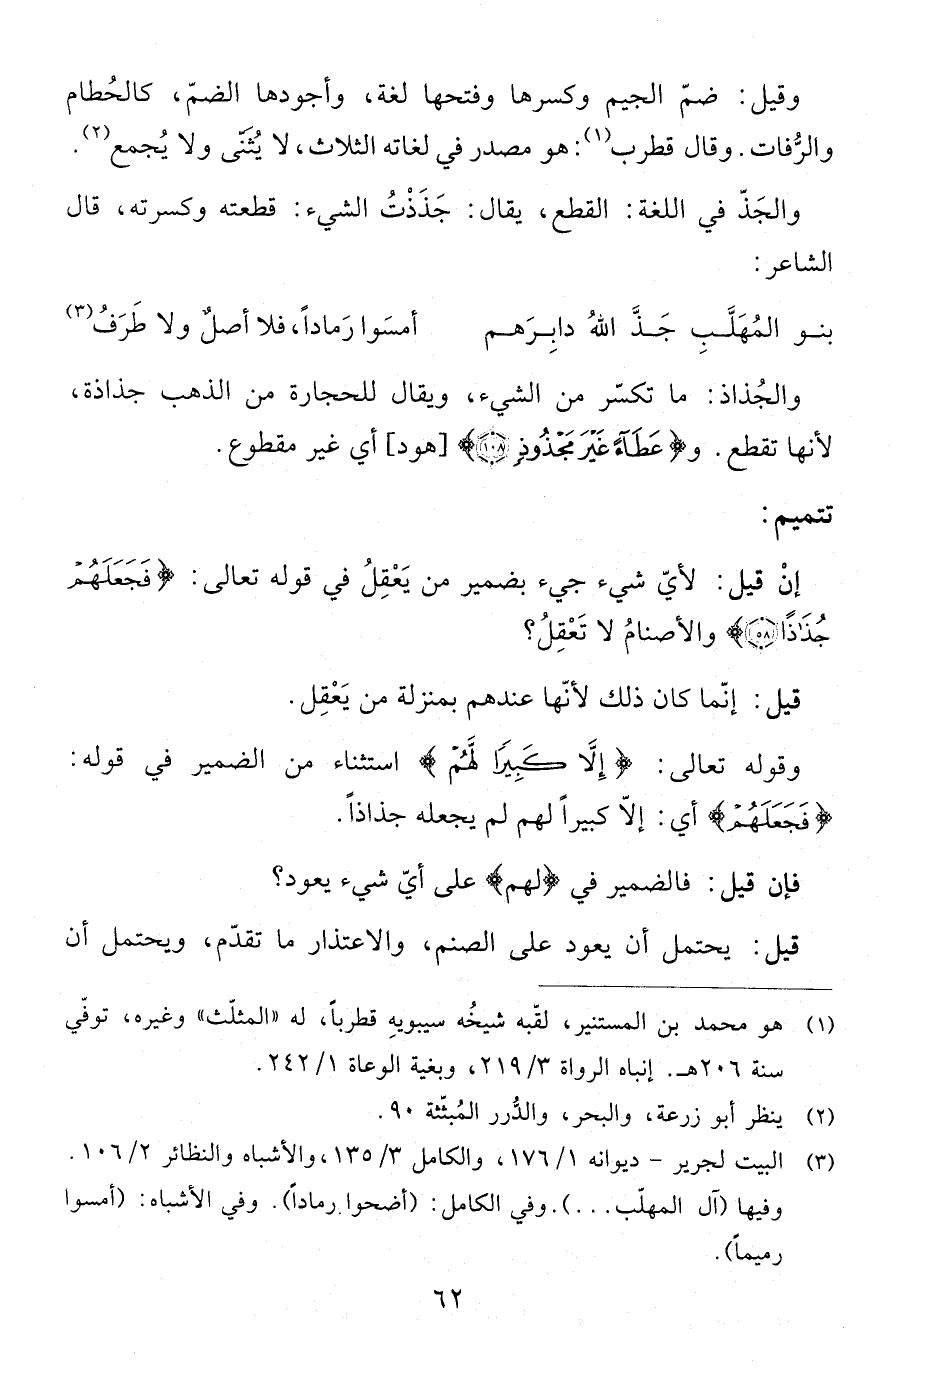 وقيل: ضمّ الجيم وكسرها وفتحها لغة، وأجودها الضمّ، كالحُطام
والرُّفات. وقال قطرب(١): هو مصدر في لغاته الثلاث، لا يُثَنّى ولا يُجمع(٢).
والجَذّ في اللغة: القطع، يقال: جَذَذْتُ الشيء: قطعته وكسرته، قال
الشاعر:
بنو المُهَلَّبِ جَذَّ اللهُ دابِرَهم أمسَوا رَماداً، فلا أصلٌ ولا طَرَفُ(٣)
والجُذاذ: ما تكسّر من الشيء، ويقال للحجارة من الذهب جذاذة،
لأنها تقطع. و﴿عَطَآءً غَيْرَ مَجْذُوذٍ ١٠٨﴾ [هود] أي غير مقطوع.
تتميم:
إنْ قيل: لأيّ شيء جيء بضمير من يَعْقِلُ في قوله تعالى: ﴿فَجَعَلَهُمْ
جُذَٰذًا ٥٨﴾ والأصنامُ لا تَعْقِلُ؟
قيل: إنّما كان ذلك لأنّها عندهم بمنزلة من يَعْقِل.
وقوله تعالى: ﴿إِلَّا كَبِيرًا لَّهُمْ﴾ استثناء من الضمير في قوله:
﴿فَجَعَلَهُمْ﴾ أي: إلاّ كبيراً لهم لم يجعله جذاذاً.
فإن قيل: فالضمير في ﴿لهم﴾ على أيّ شيء يعود؟
قيل: يحتمل أن يعود على الصنم، والاعتذار ما تقدّم، ويحتمل أن
(١) هو محمد بن المستنير، لقّبه شيخُه سيبويهِ قطرباً، له «المثلّث» وغيره، توفّي
سنة ٢٠٦هـ. إنباه الرواة ٣/ ٢١٩، وبغية الوعاة ١/ ٢٤٢.
(٢) ينظر أبو زرعة، والبحر، والدُّرر المُبثّثة ٩٠.
(٣) البيت لجرير – ديوانه ١/ ١٧٦، والكامل ٣/ ١٣٥، والأشباه والنظائر ٢/ ١٠٦.
وفيها (آل المهلّب...). وفي الكامل: (أضحوا رماداً). وفي الأشباه: (أمسوا
رميماً).
٦٢